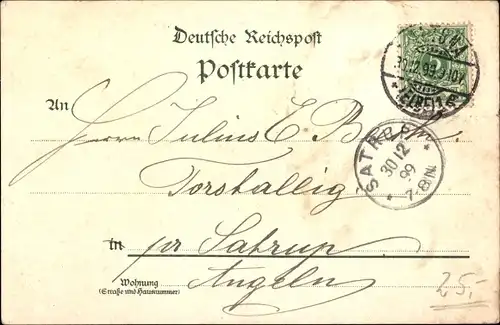 Deutsche Reichspost
Postkarte
30.12.99
An
Herrn Julius C. B
SATRUP
30 12
99
7-8 N.
Torstallig
in pr Satrup
Wohnung
(Straße und Hausnummer)
Angeln
25,-